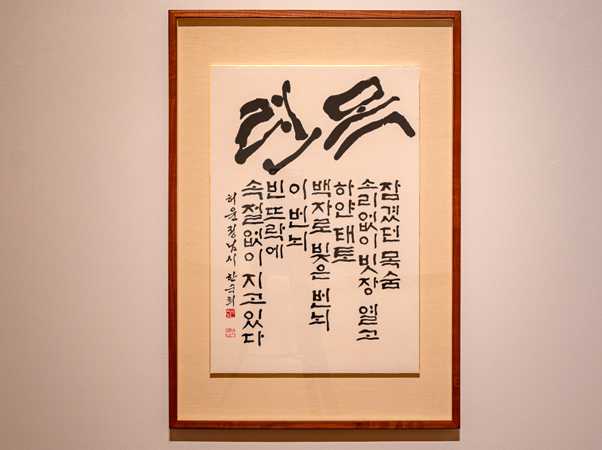 목련
잠겼던 목숨
소리없이 빗장 열고
하얀 태토
백자로 빚은 번뇌
이 번뇌
빈 뜨락에
속절없이 지고있다
허윤정님 시